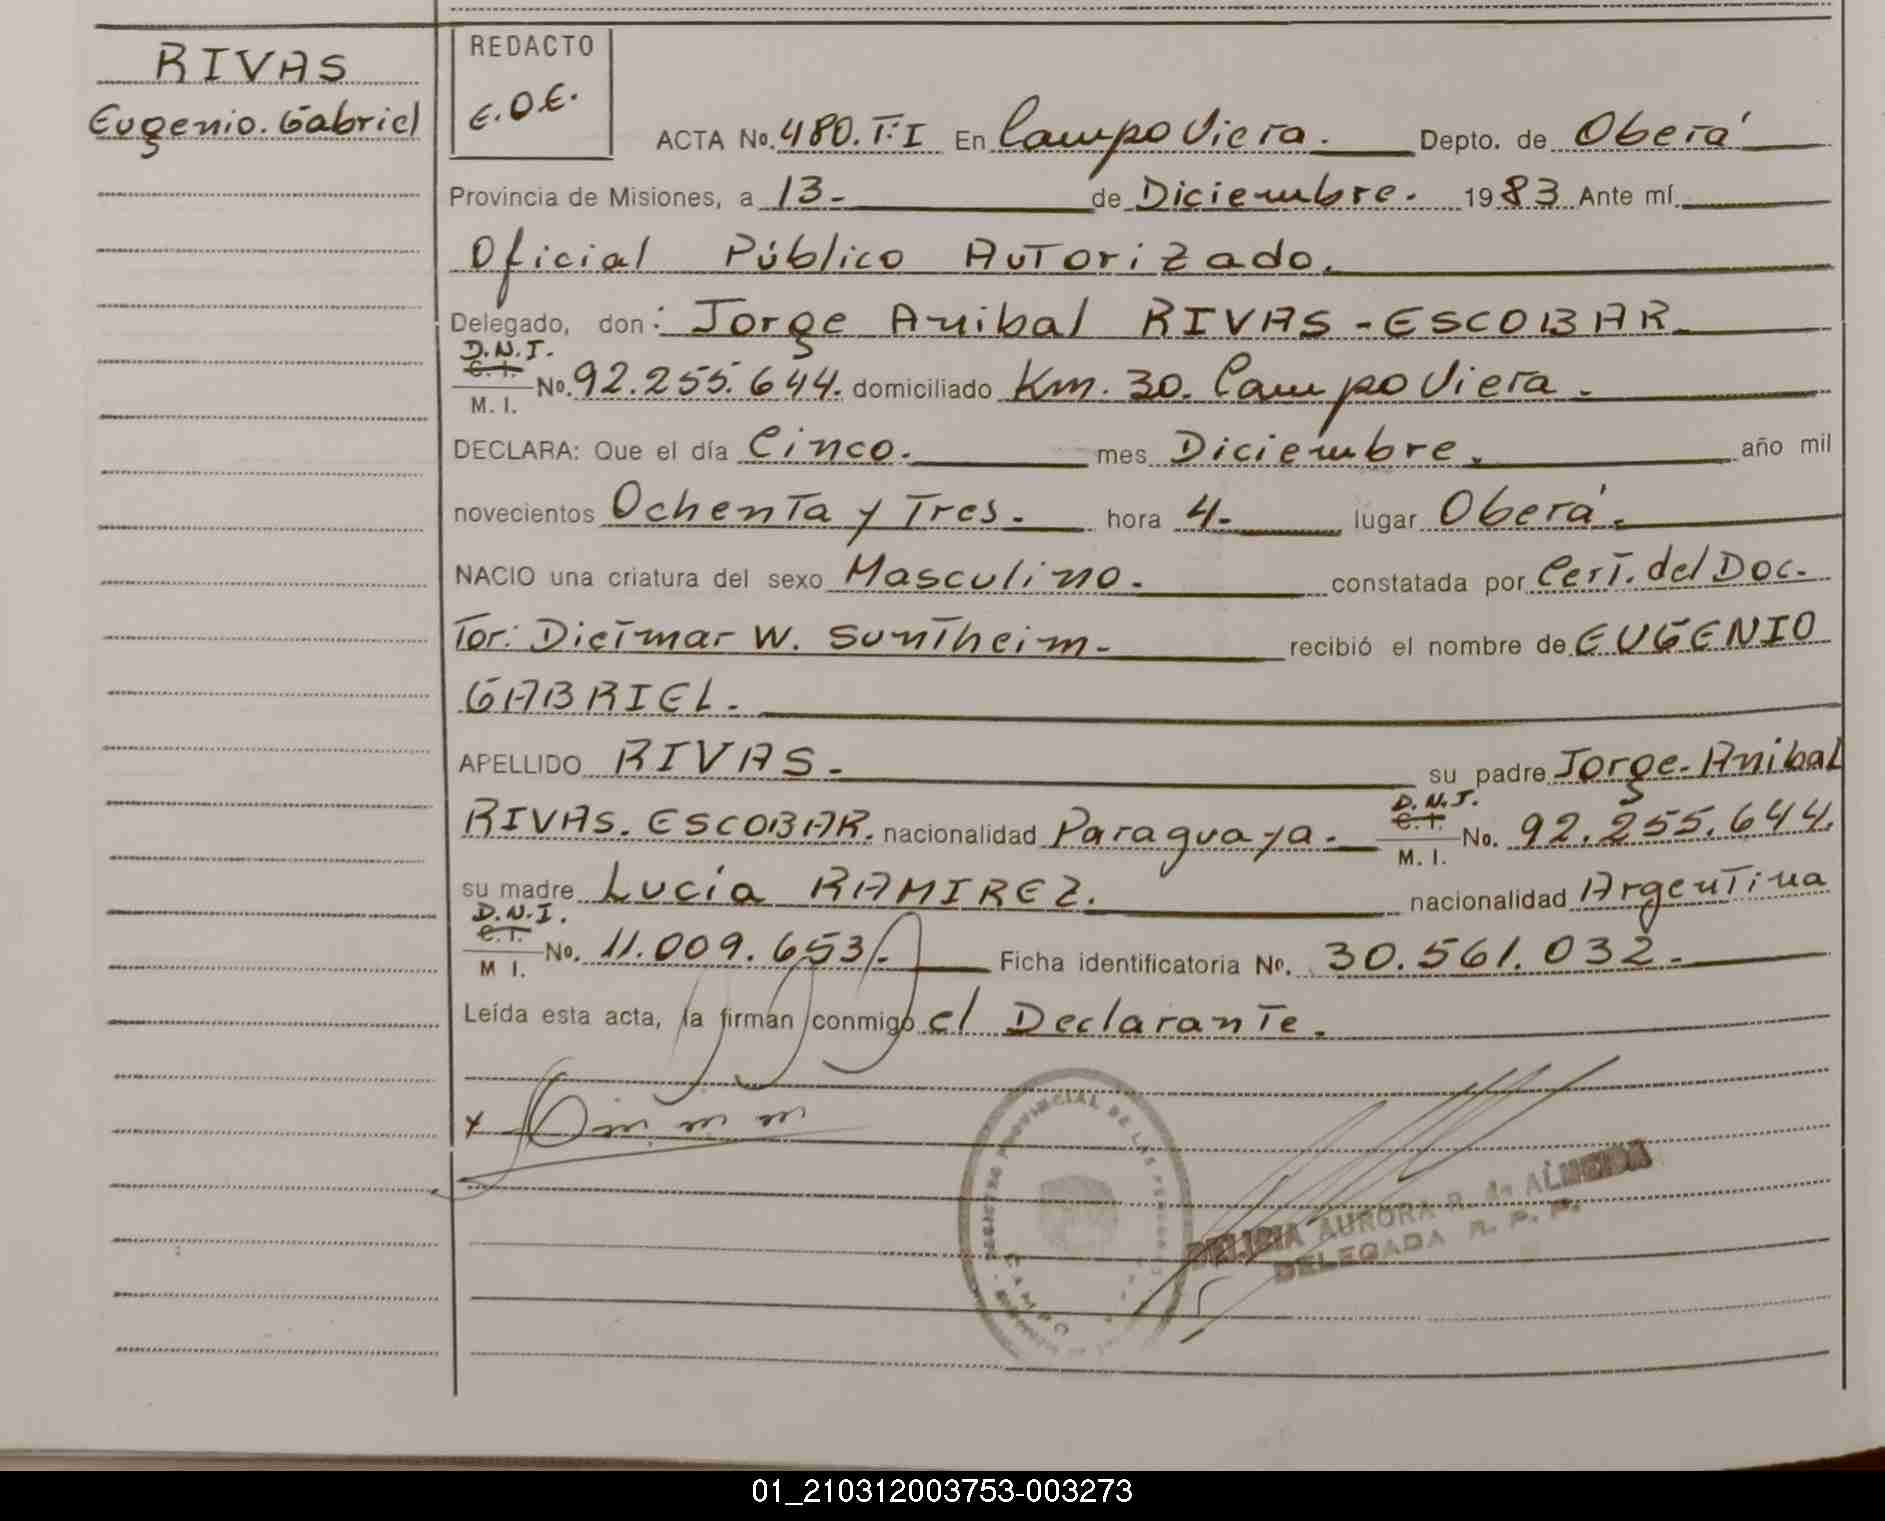 RIVAS
Eugenio. Gabriel
REDACTO
E.O.E.
ACTA No. 480. T: I En Campo Viera. Depto. de Oberá
Provincia de Misiones, a 13- de Diciembre. 1983 Ante mí
Oficial Público Autorizado.
Delegado, don: Jorge Anibal RIVAS-ESCOBAR
D.N.I.
C.I.
M. I.
No. 92.255.644. domiciliado Km. 30. Campo Viera.
DECLARA: Que el día Cinco. mes Diciembre. año mil
novecientos Ochenta y Tres. hora 4- lugar Oberá.
NACIO una criatura del sexo Masculino. constatada por Cert. del Doc.
Tor: Dietmar W. Suntheim- recibió el nombre de EUGENIO
GABRIEL.
APELLIDO RIVAS. su padre Jorge-Anibal
RIVAS. ESCOBAR. nacionalidad Paraguaya. D.N.I. C.I. M. I. No. 92.255.644.
su madre Lucía RAMIREZ. nacionalidad Argentina
D.N.I.
C.I.
M I.
No. 11.009.653/. Ficha identificatoria No. 30.561.032-
Leída esta acta, la firman conmigo el Declarante.
PROVINCIAL DE LAS PERSONAS
CAMPO
AURORA R. de ALMEIDA
DELEGADA R. P. P.
01_210312003753-003273